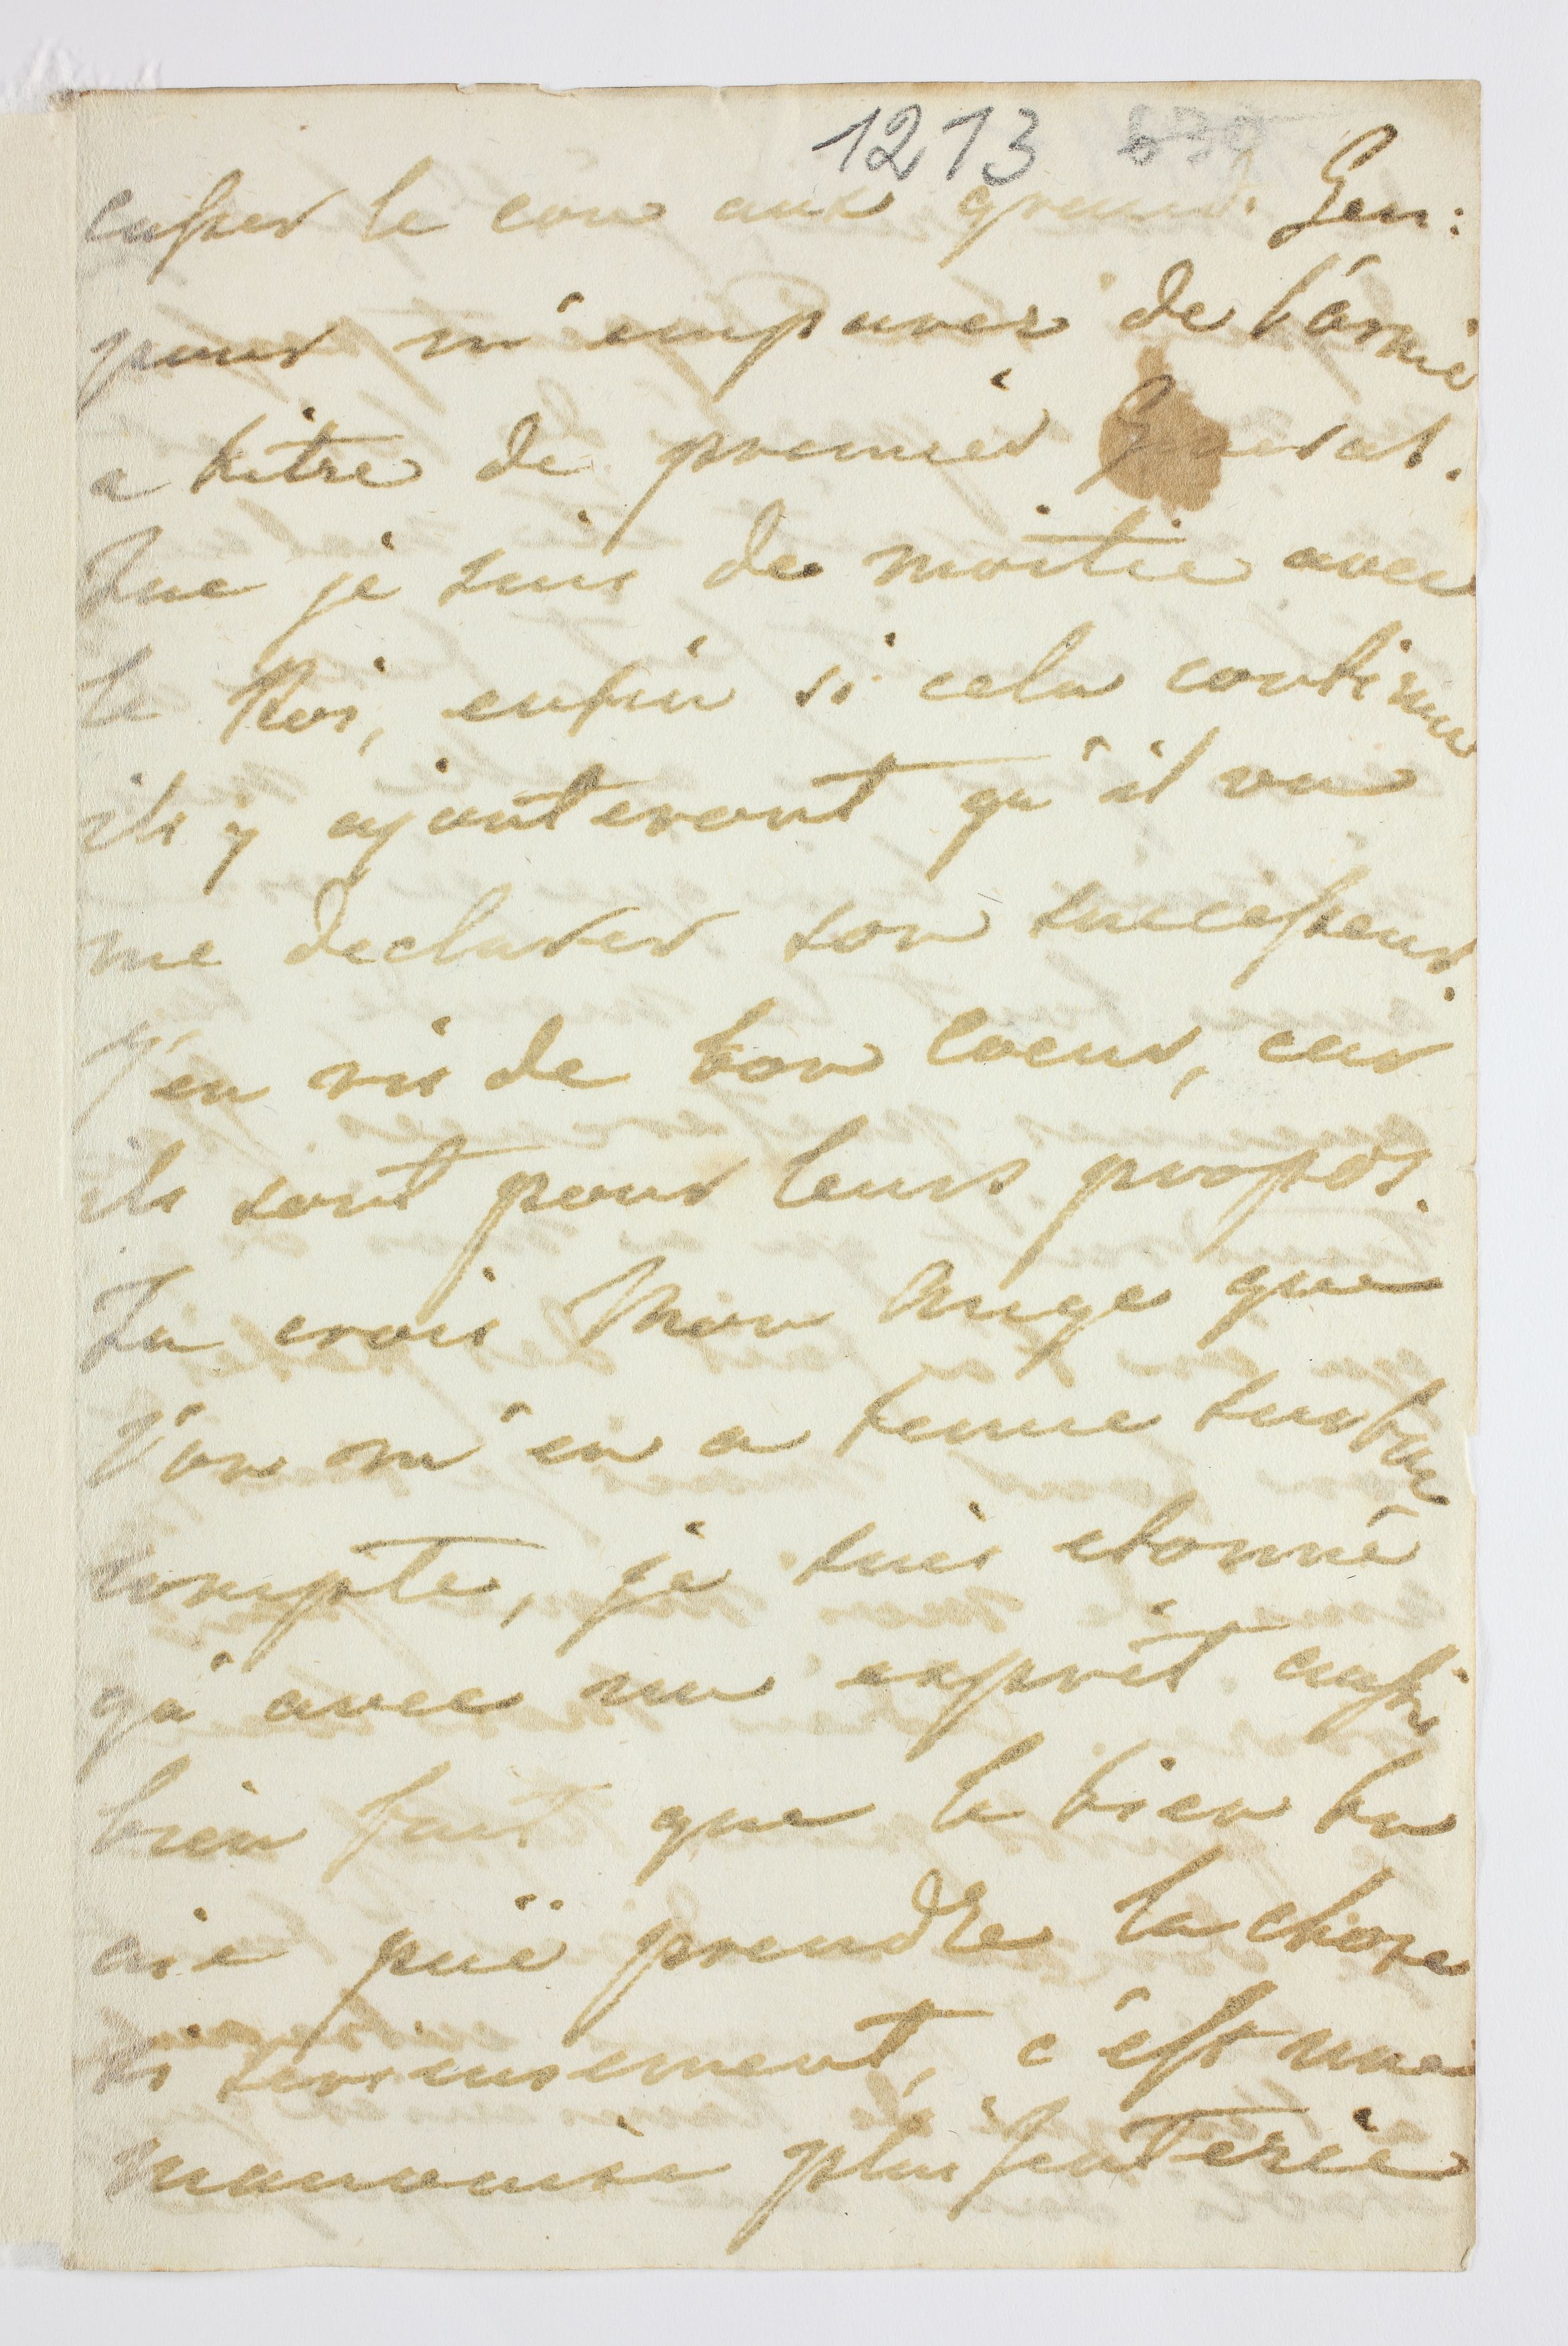 1213 639
casser le cou aux grands Gen:
pour m'emparer de l'armé
a titre de premier General.
Que je suis de moitie avec
le Roi, enfin si cela continue
ils y ajouteront qu'il va
me declarer son successeur.
j'en ris de bon coeur, car
ils sont pour leurs propos.
Tu crois Mon Ange que
l'on m'en a tenue sur ton
compte, je suis etonné
qu'avec un esprit aussi
bien fait que le tien tu
aie puë prendre la chose
si serieusement, c'est une
mauvaise plaisenterie